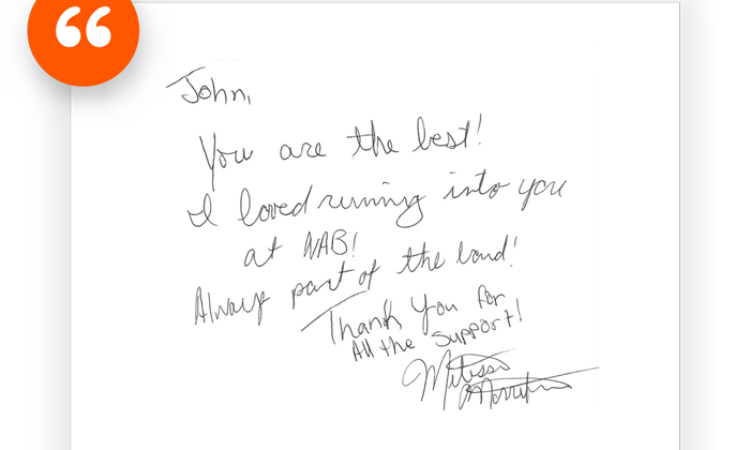 “
John,
You are the best!
I loved running into you
at NAB!
Always part of the band!
Thank You for
All the Support!
Melissa